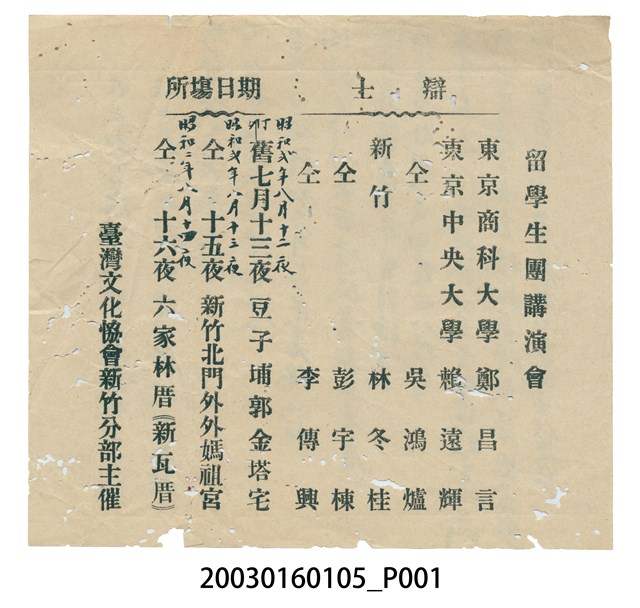 留學生團講演會
辯士
東京商科大學 鄭昌言
東京中央大學 賴遠輝
仝 吳鴻爐
新竹 林冬桂
仝 彭宇棟
仝 李傳興
期日場所
昭和弍年八月十一夜
舊七月十三夜 豆子埔郭金塔宅
昭和弍年八月十三夜
仝 十五夜 新竹北門外外媽祖宮
昭和二年八月十四夜
仝 十六夜 六家林厝(新瓦厝)
臺灣文化協會新竹分部主催
20030160105_P001